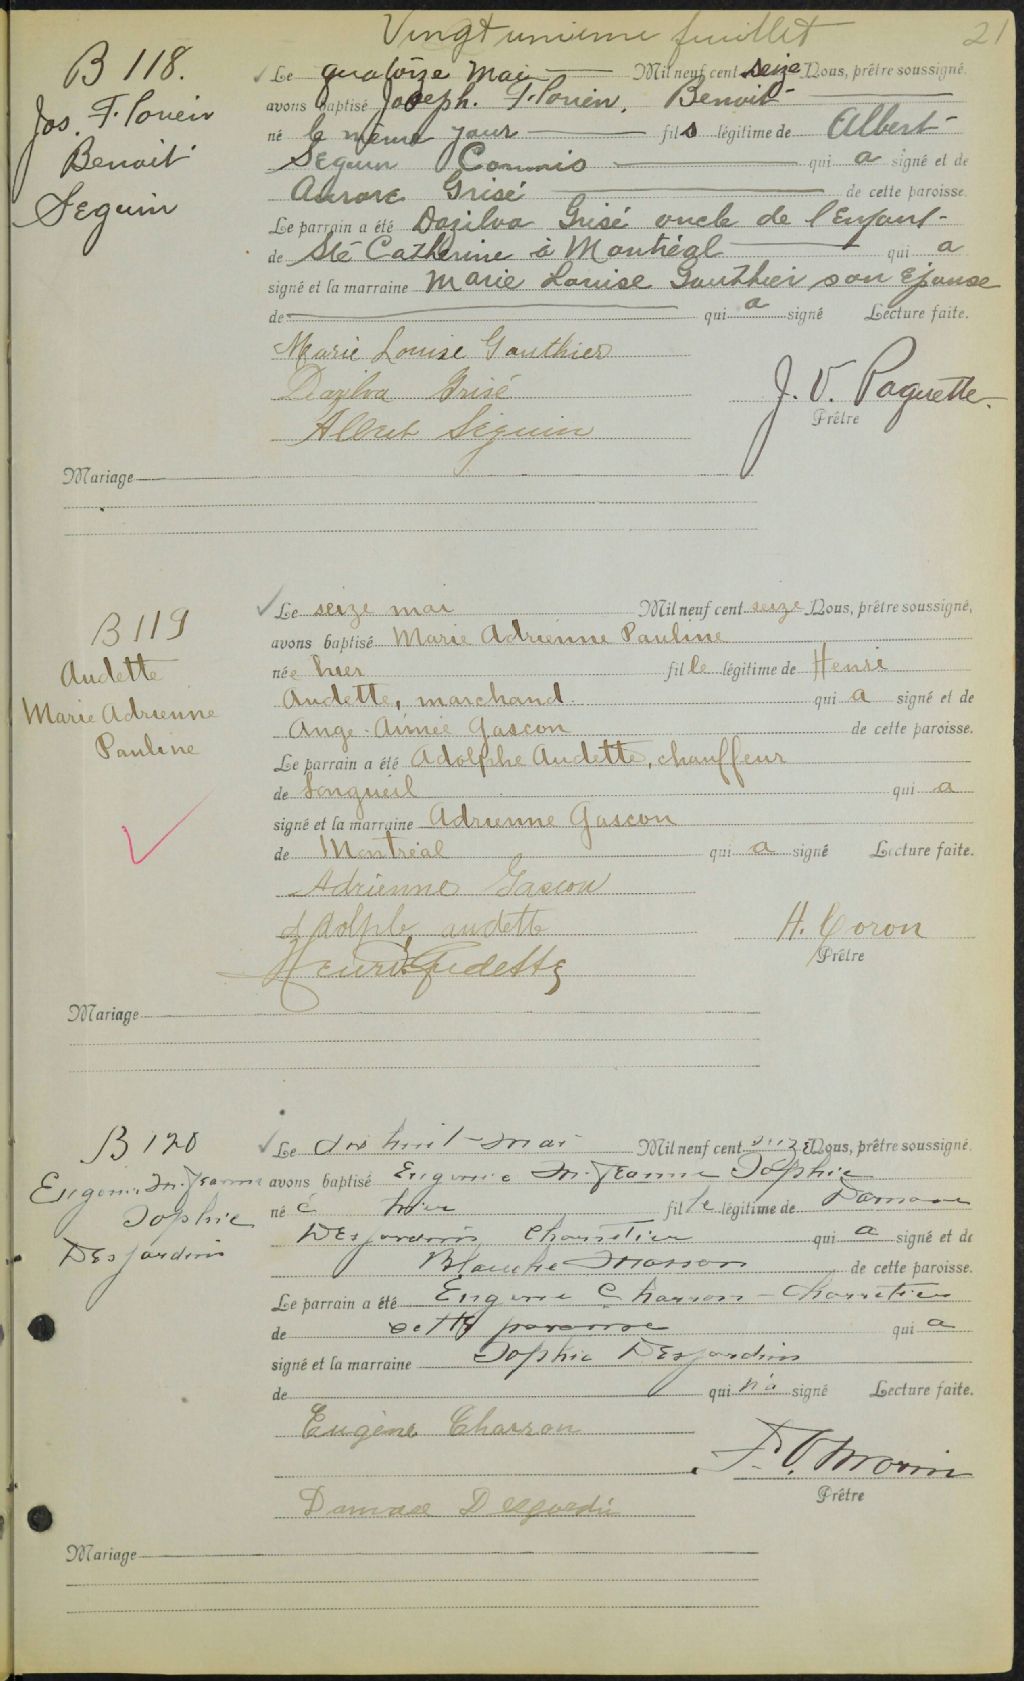 Vingt unieme feuillet 21
B 118.
Jos. F. Louein
Benoit
Seguin
Le quatorze Mai Mil neuf cent seize Nous, prêtre soussigné.
avons baptisé Joseph. F. Louein, Benoit
né le même jour fils légitime de Albert
Seguin Commis qui a signé et de
Aurore Grisé de cette paroisse.
Le parrain a été Dazilva Grisé oncle de l'Enfant
de Ste Catherine à Montréal qui a
signé et la marraine Marie Louise Gauthier son Epouse
de qui a signé Lecture faite.
Marie Louise Gauthier
Dazilva Grisé
Albert Séguin
J. V. Paquette.
Prêtre
Mariage
B 119
Audette
Marie Adrienne
Pauline
Le seize mai Mil neuf cent seize Nous, prêtre soussigné,
avons baptisé Marie Adrienne Pauline
née hier fille légitime de Henri
Audette, marchand. qui a signé et de
Ange-Aimée Gascon de cette paroisse.
Le parrain a été Adolphe Audette, chauffeur
de Longueil qui a
signé et la marraine Adrienne Gascon
de Montréal qui a signé Lecture faite.
Adrienne Gascon
Adolphe audette
Henri Audette
H. Coron
Prêtre
Mariage
B 120
Eugenie M. Jeanne
Sophie
Desjardins
Le dix huit mai Mil neuf cent seize Nous, prêtre soussigné.
avons baptisé Eugenie M. Jeanne Sophie
né e hier fille légitime de Damase
Desjardins Charretier qui a signé et de
Blanche Masson de cette paroisse.
Le parrain a été Eugene Charron - Charretier
de cette paroisse qui a
signé et la marraine Sophie Desjardins
de qui n'a signé Lecture faite.
Eugène Charron
Damase Desjardin
Morin
Prêtre
Mariage